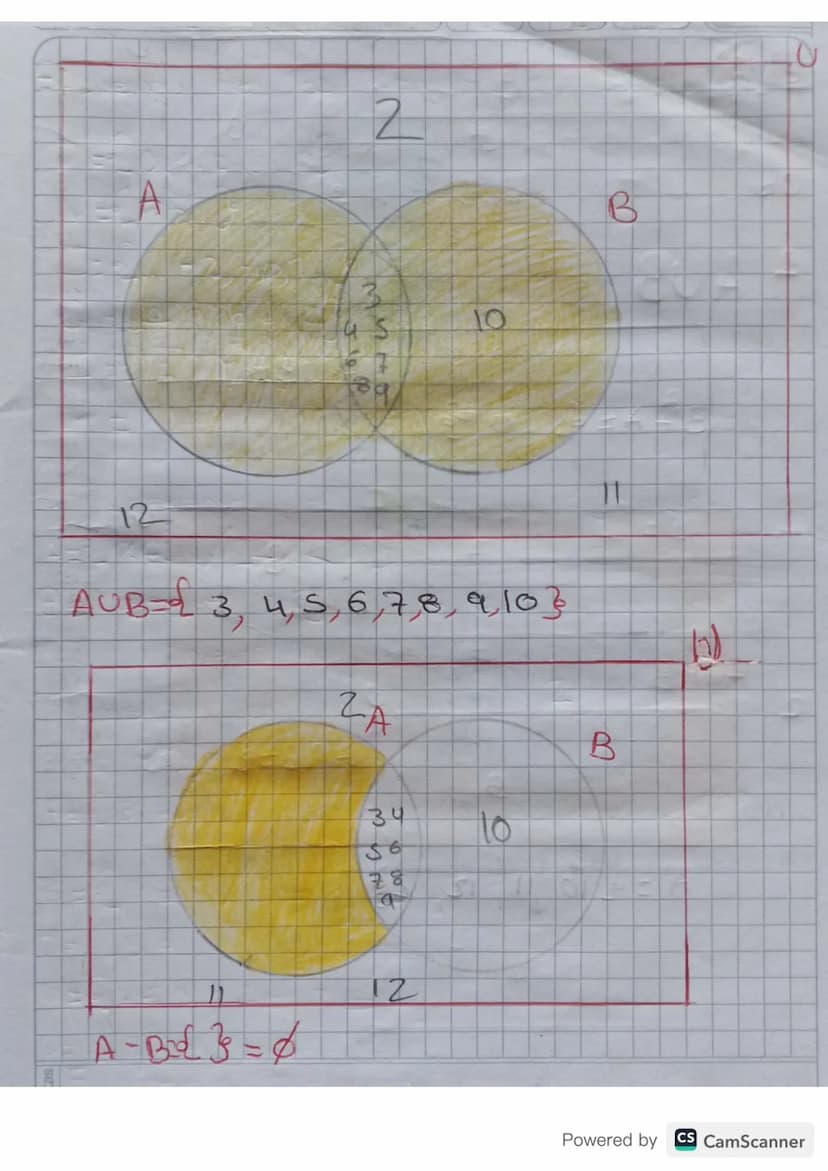 U
2
A B
3
10
4 5
6 7
8 9
11
12
AUB={ 3, 4, 5, 6, 7, 8, 9, 10 }
2 A
B
3 4
10
5 6
7 8
9
11 12
A - B={ } = ϕ
Powered by CS CamScanner